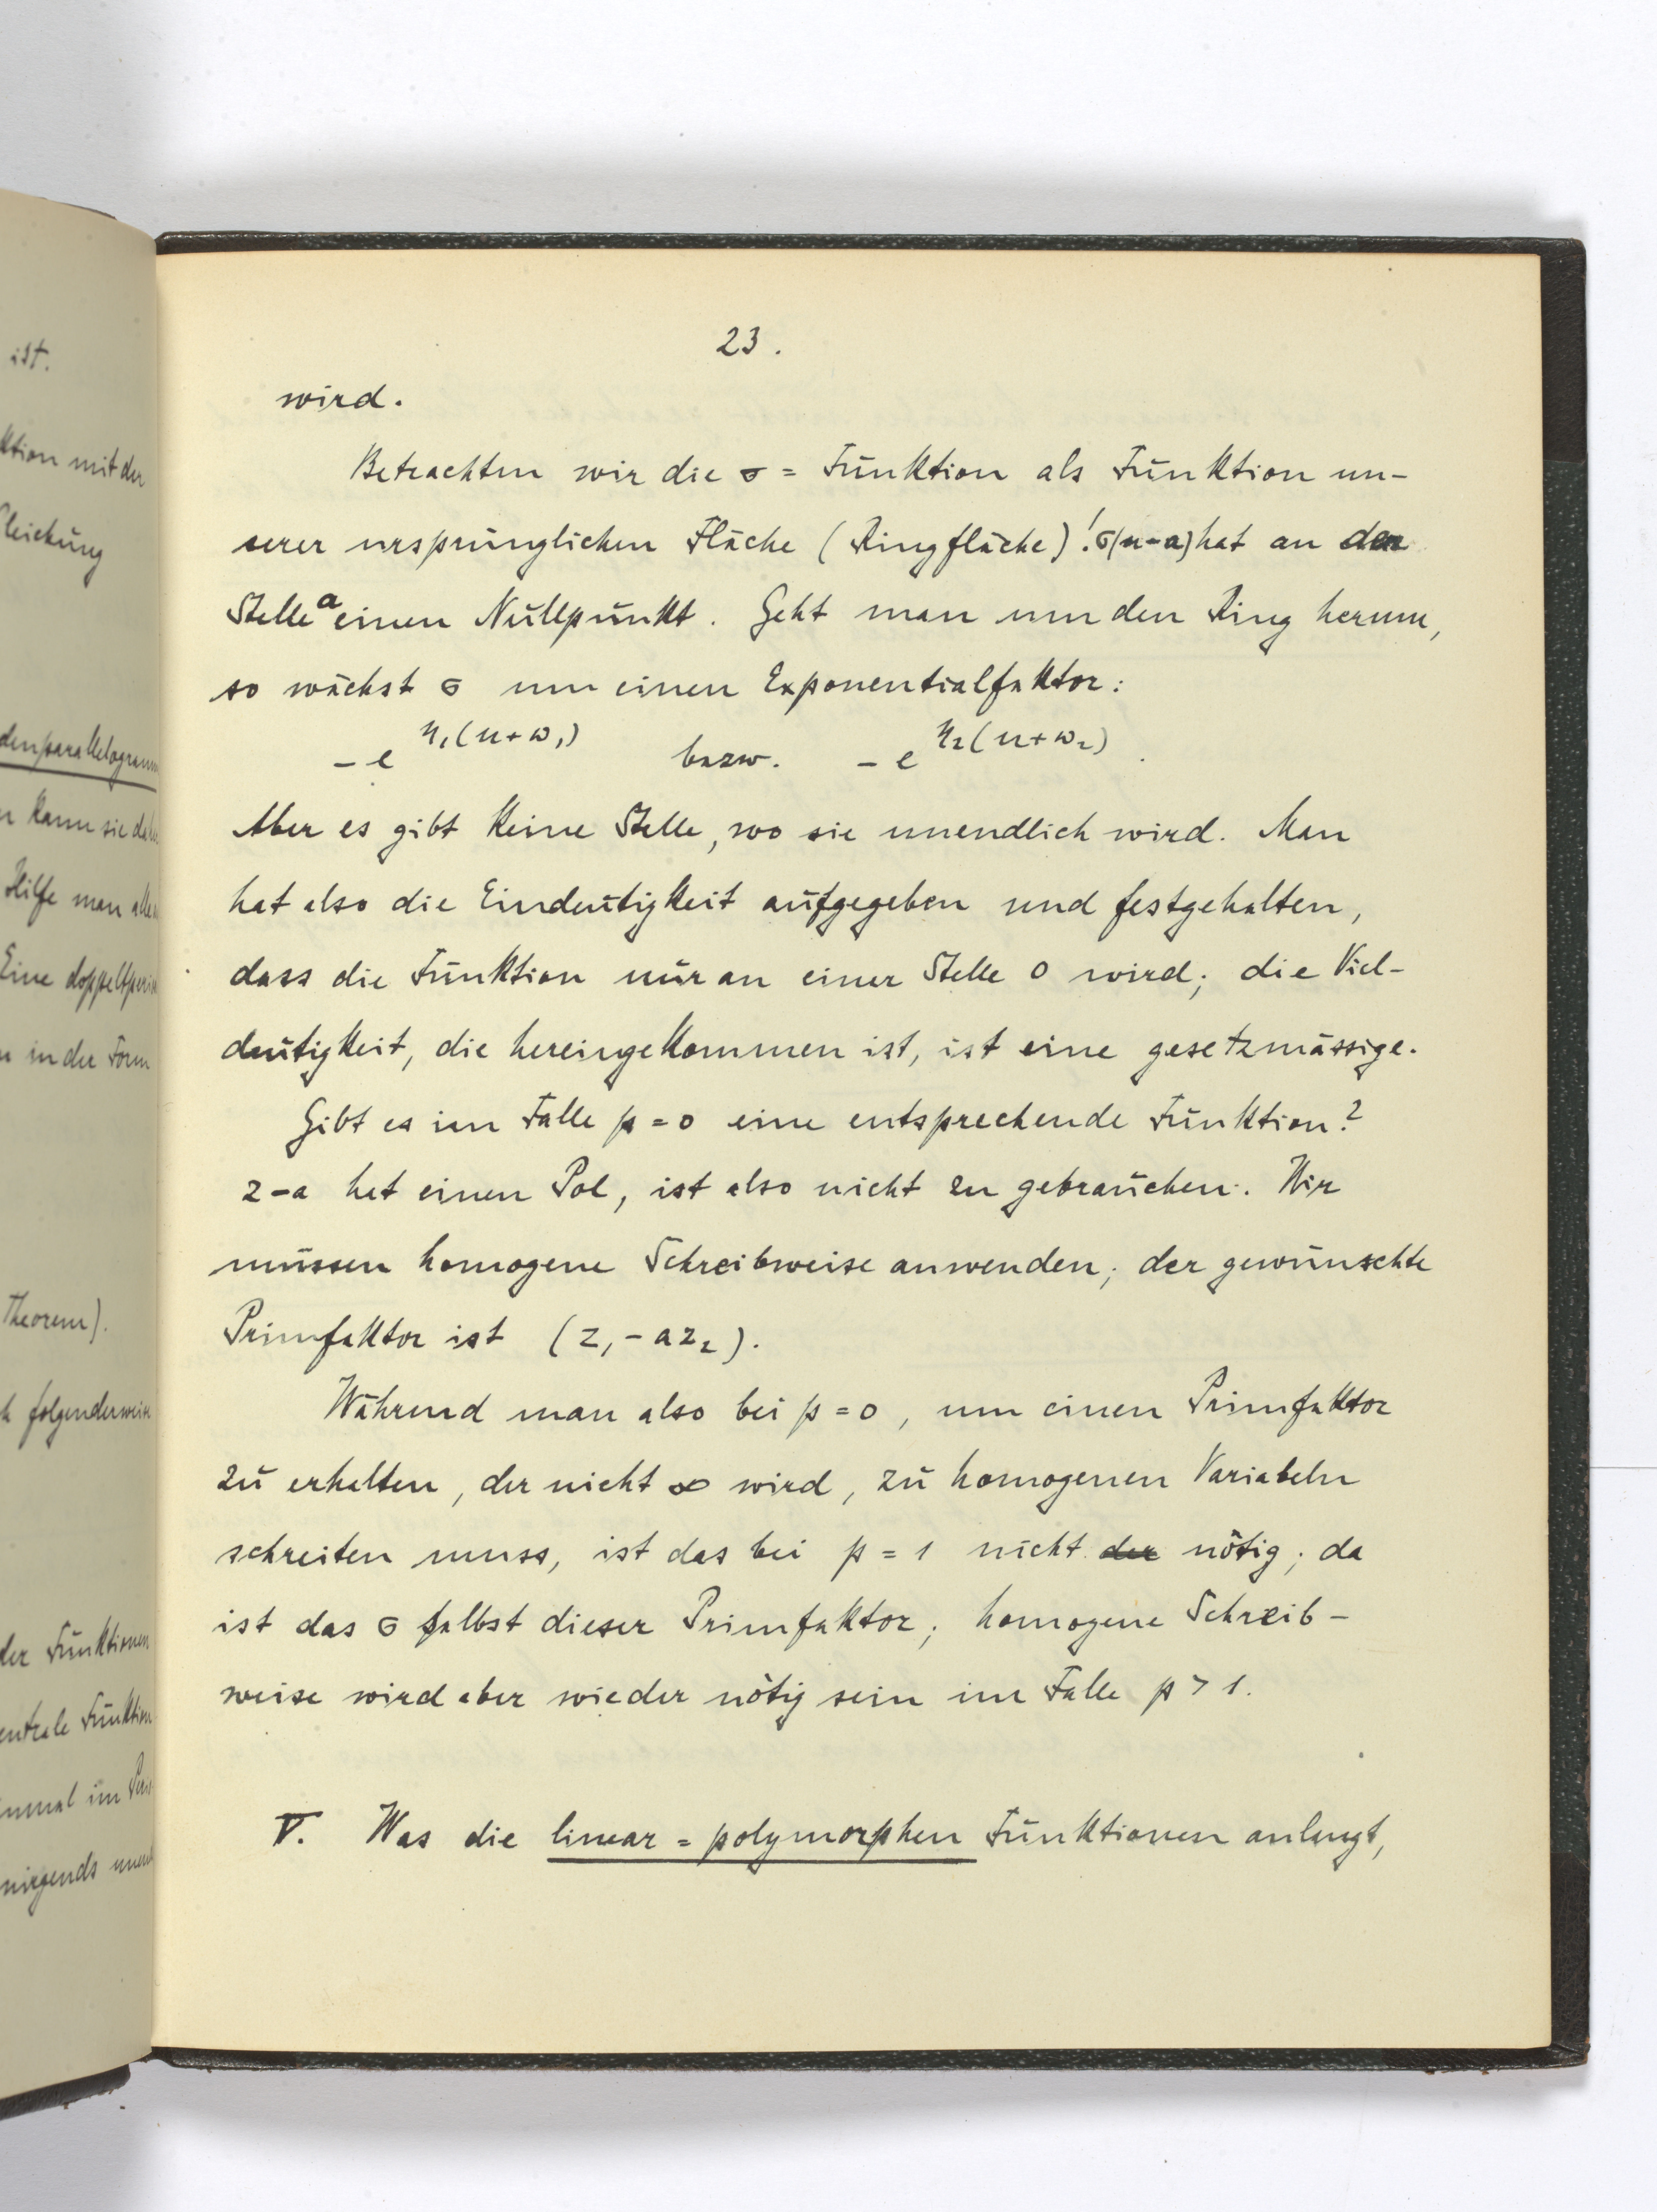 ist.
ktion mit der
Gleichung
denparallelogramm
n kann sie da
Hilfe man alle
Eine doppeltperio
n in der Form
Theorem).
h folgenderweise
der Funktionen
entrale Funktion
inmal im Per
nirgends unend
23.
wird.
Betrachten wir die σ = Funktion als Funktion un-
serer ursprünglichen Fläche (Ringfläche)! σ(u-a) hat an der
Stelle a einen Nullpunkt. Geht man um den Ring herum,
so wächst σ um einen Exponentialfaktor:
- e^{η₁(u+ω₁)} bezw. - e^{η₂(u+ω₂)}.
Aber es gibt keine Stelle, wo sie unendlich wird. Man
hat also die Eindeutigkeit aufgegeben und festgehalten,
dass die Funktion nur an einer Stelle 0 wird; die Viel-
deutigkeit, die hereingekommen ist, ist eine gesetzmässige.
Gibt es im Falle p = 0 eine entsprechende Funktion?
z-a hat einen Pol, ist also nicht zu gebrauchen. Wir
müssen homogene Schreibweise anwenden; der gewünschte
Primfaktor ist (z₁ - az₂).
Während man also bei p = 0, um einen Primfaktor
zu erhalten, der nicht ∞ wird, zu homogenen Variabeln
schreiten muss, ist das bei p = 1 nicht der nötig; da
ist das σ selbst dieser Primfaktor; homogene Schreib-
weise wird aber wieder nötig sein im Falle p > 1.
V. Was die linear = polymorphen Funktionen anlangt,